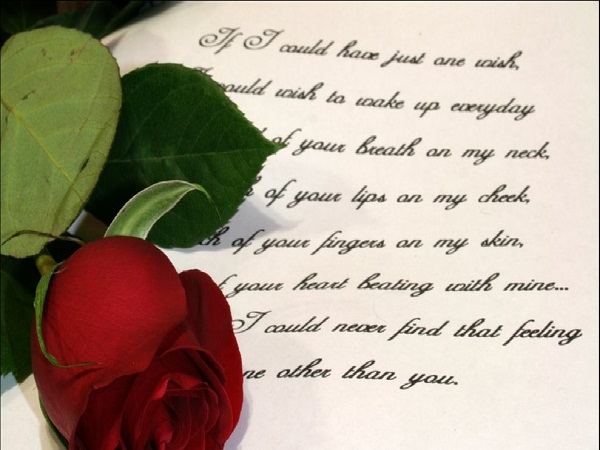 If I could have just one wish,
would wish to wake up everyday
of your breath on my neck,
of your lips on my cheek,
of your fingers on my skin,
your heart beating with mine...
I could never find that feeling
other than you.